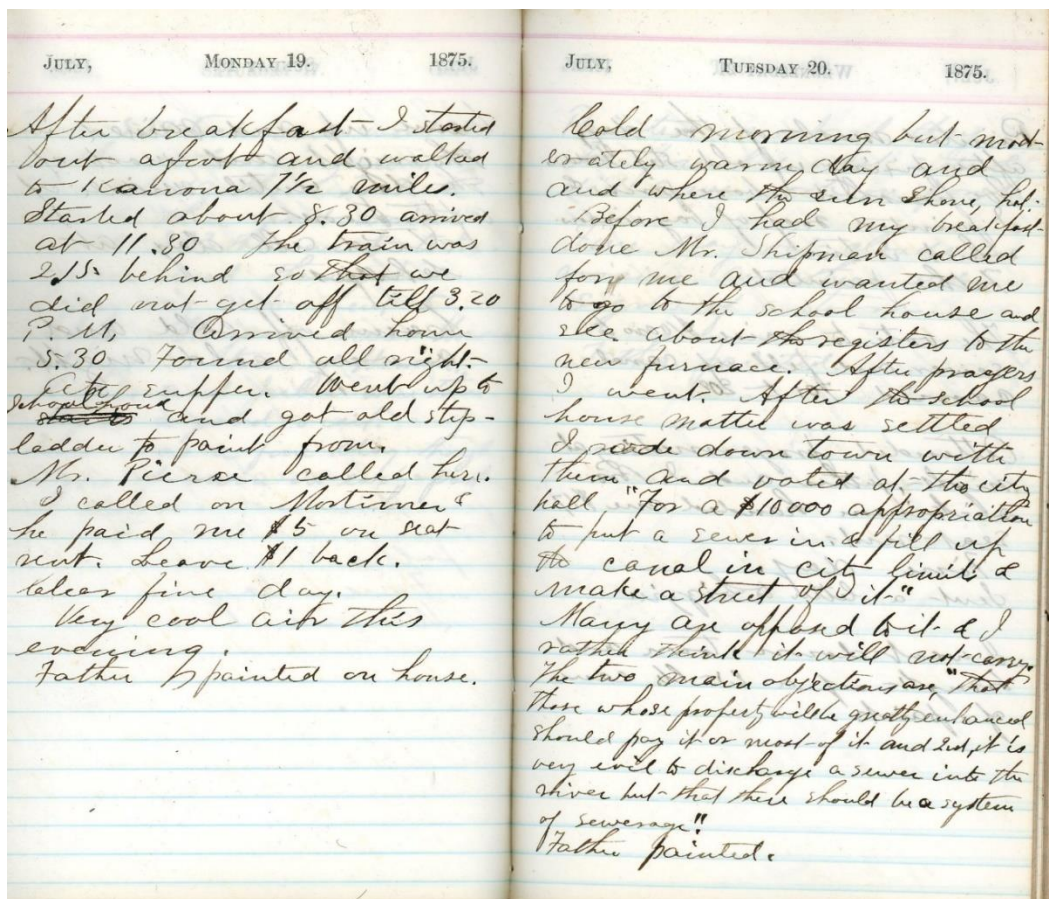 JULY, MONDAY 19. 1875.
After breakfast I started
out afoot and walked
to Kanona 7½ miles.
Started about 8.30 arrived
at 11.30 The train was
2.15 behind so that we
did not get off till 3.20
P.M. Arrived home
5.30 Found all right.
Ate supper. Went up to
school house
stairs and got old step-
ladder to paint from.
Mr. Pierse called here.
I called on Mortimer &
he paid me $5 on seat
rent. Leave $1 back.
Clear fine day.
Very cool air this
evening.
Father painted on house.
JULY, TUESDAY 20. 1875.
Cold morning but mod-
erately warm day and
and where the sun shone, hot.
Before I had my breakfast
done Mr. Shipman called
for me and wanted me
to go to the school house and
see about the registers to the
new furnace. After prayers
I went. After the school
house matter was settled
I rode down town with
them and voted at the city
hall "For a $10000 appropriation
to put a sewer in & fill up
the canal in city limits &
make a street of it"
Many are opposed to it & I
rather think it will not carry.
The two main objections are, "that
those whose property will be greatly enhanced
should pay it or most of it and 2nd, it is
very evil to discharge a sewer into the
river but that there should be a system
of sewerage".
Father painted.